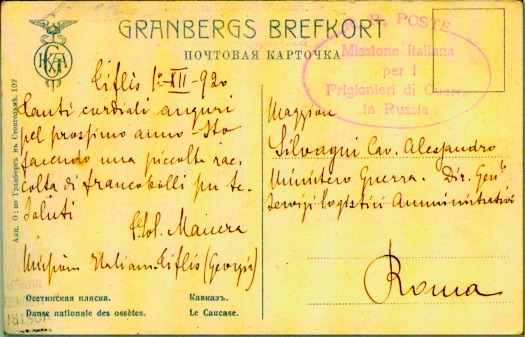 GRANBERGS BREFKORT
ПОЧТОВАЯ КАРТОЧКА
R. POSTE
Missione Italiana
per i
Prigionieri di Guerra
in Russia
Акц. О:во Гранбергъ въ Стокгольмѣ. 107
Tiflis 1º XII - 920
Tanti cordiali auguri
pel prossimo anno - Sto
facendo una piccola rac-
colta di francobolli per te
Saluti
Col. Maiuera
Missione Italiana - Tiflis (Georgia)
Maggior
Silvagni Cav. Alessandro
Ministero Guerra. Dir. Gen.
Servizi Logistici Amministrativi
Roma
Осетинская пляска.
Кавказъ.
Danse nationale des ossètes.
Le Caucase.